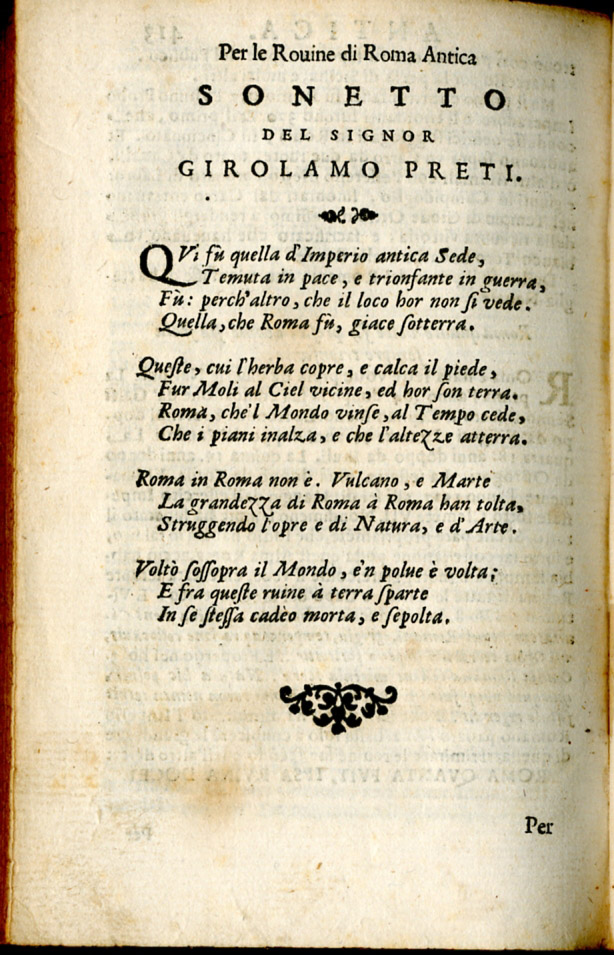 Per le Rouine di Roma Antica
SONETTO
DEL SIGNOR
GIROLAMO PRETI.
QVi fù quella d'Imperio antica Sede,
Temuta in pace, e trionfante in guerra,
Fù: perch'altro, che il loco hor non ſi vede.
Quella, che Roma fù, giace ſotterra.
Queſte, cui l'herba copre, e calca il piede,
Fur Moli al Ciel vicine, ed hor ſon terra.
Roma, che'l Mondo vinſe, al Tempo cede,
Che i piani inalza, e che l'altezze atterra.
Roma in Roma non è. Vulcano, e Marte
La grandezza di Roma à Roma han tolta,
Struggendo l'opre e di Natura, e d'Arte.
Voltò ſoſſopra il Mondo, e'n polue è volta;
E fra queſte ruine à terra ſparte
In ſe ſteſſa cadèo morta, e ſepolta.
Per